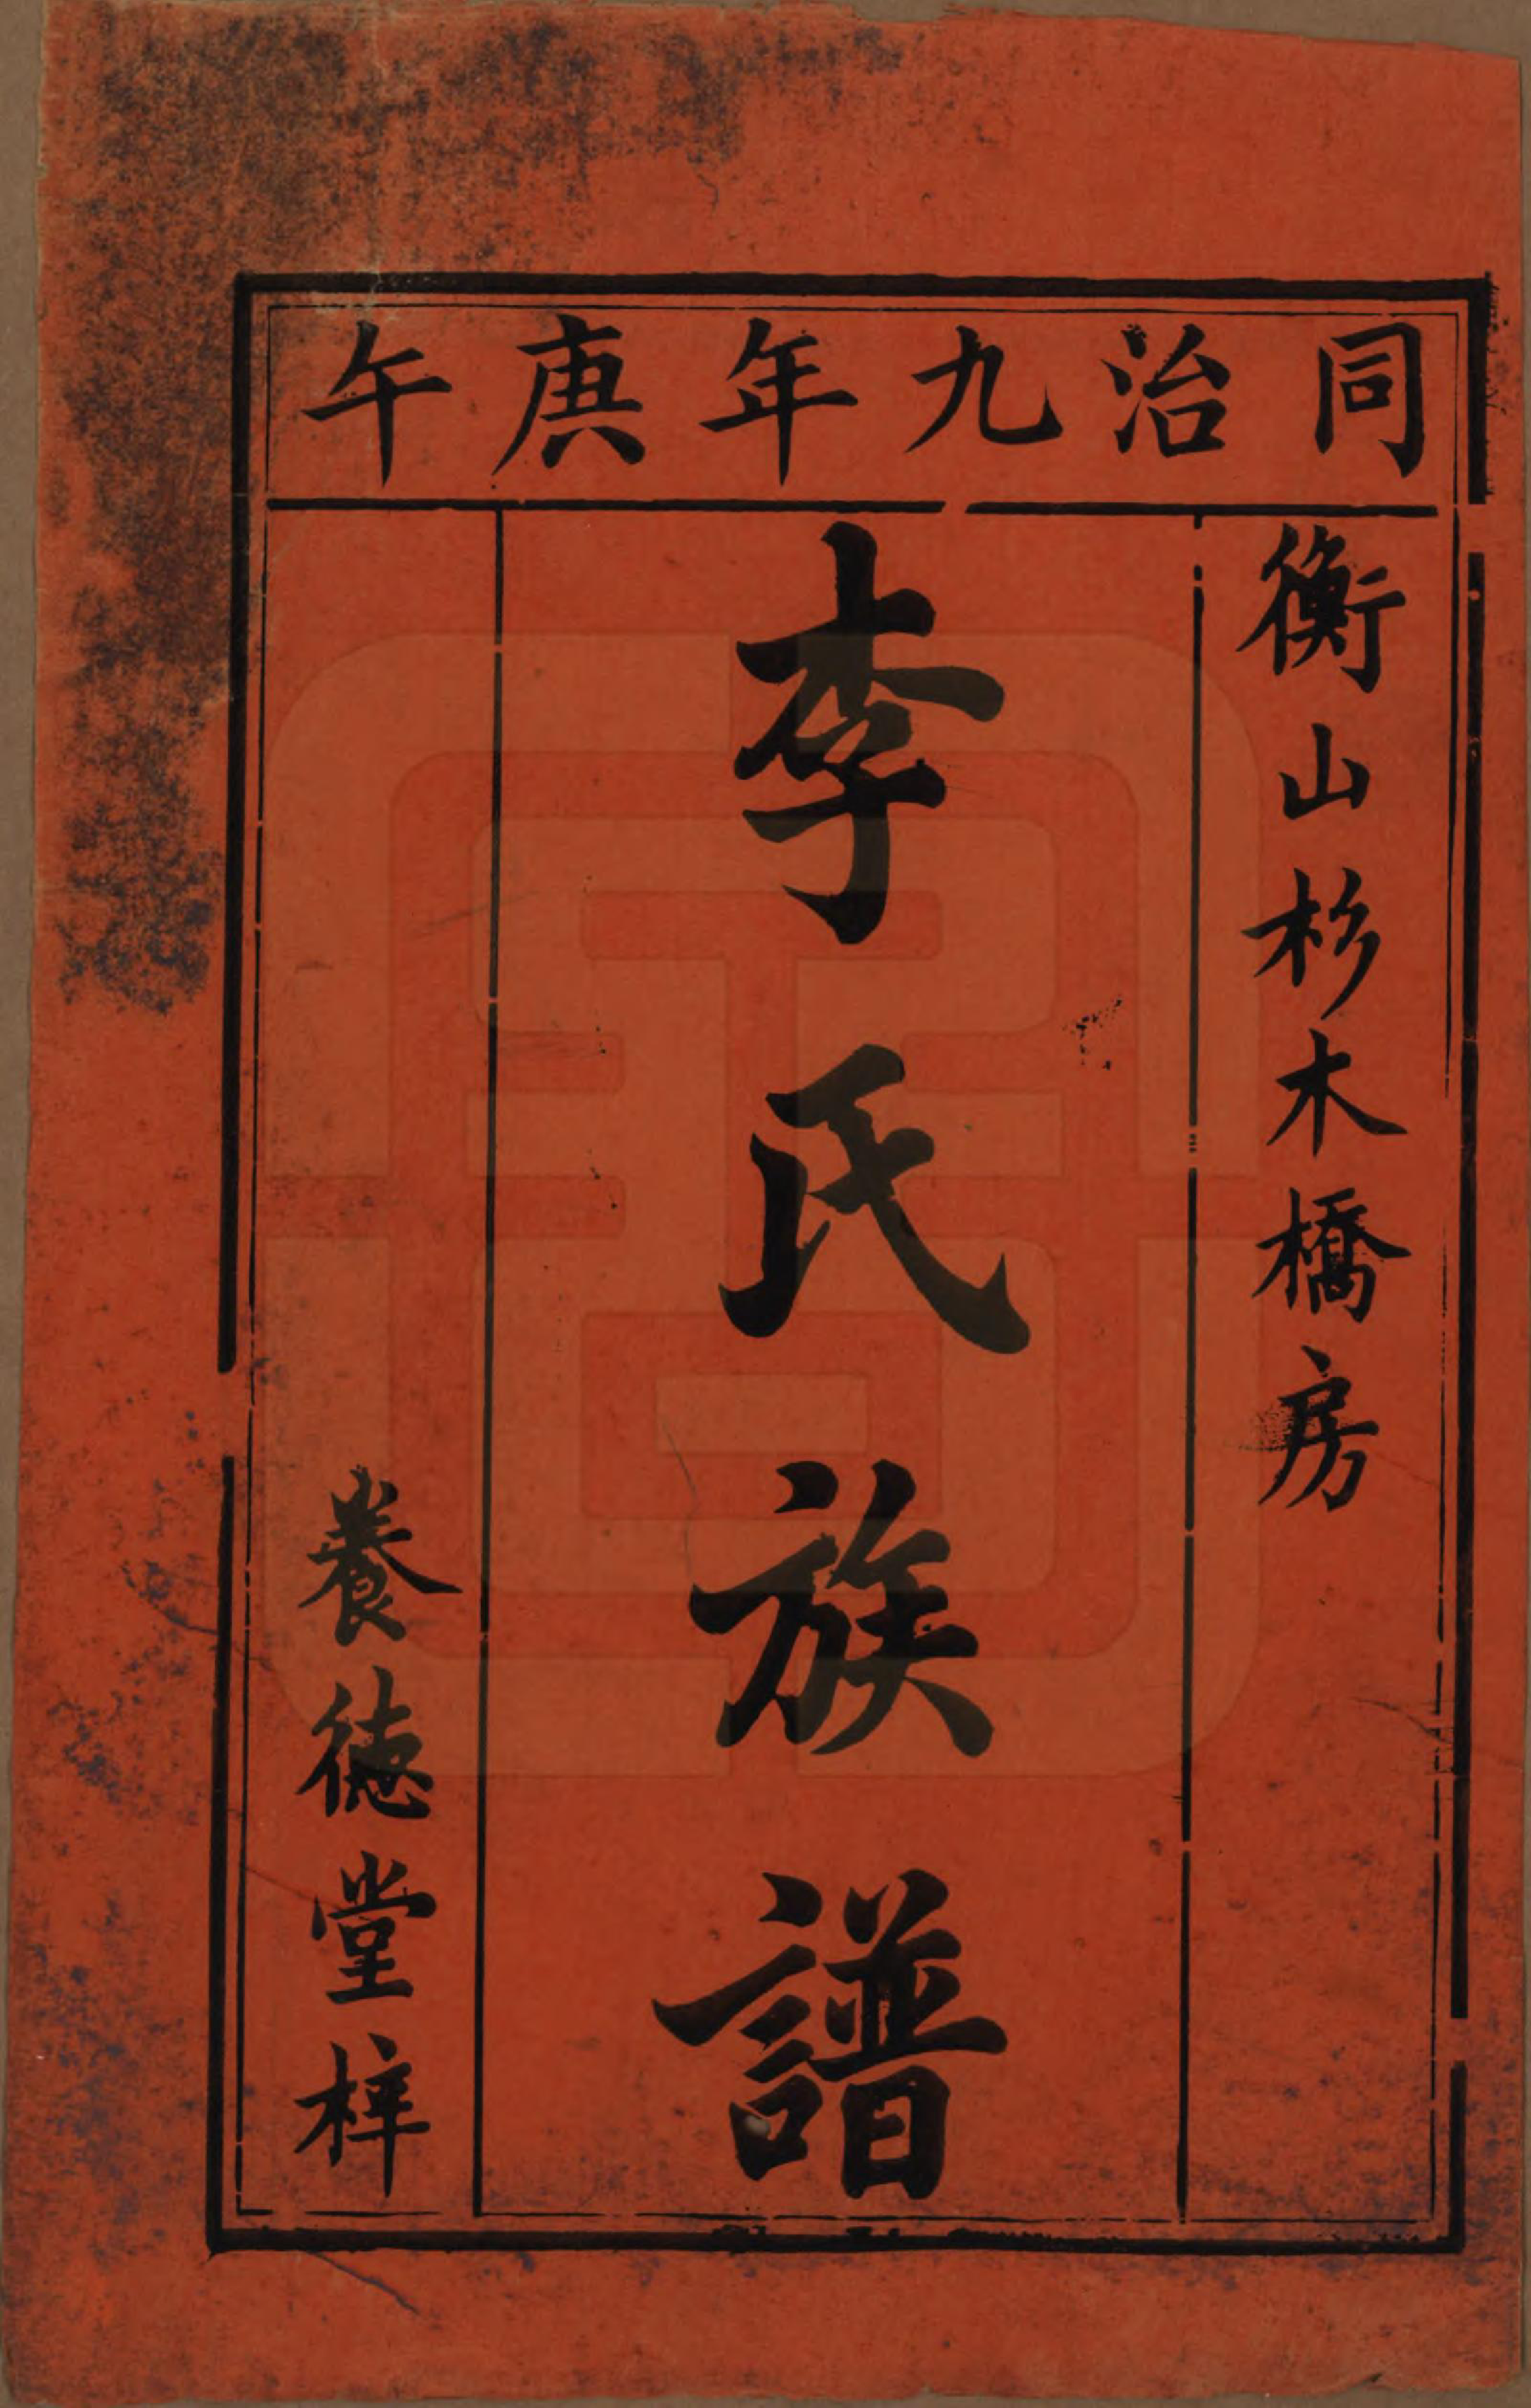 同治九年庚午
衡山杉木橋房
李氏族譜
養德堂梓